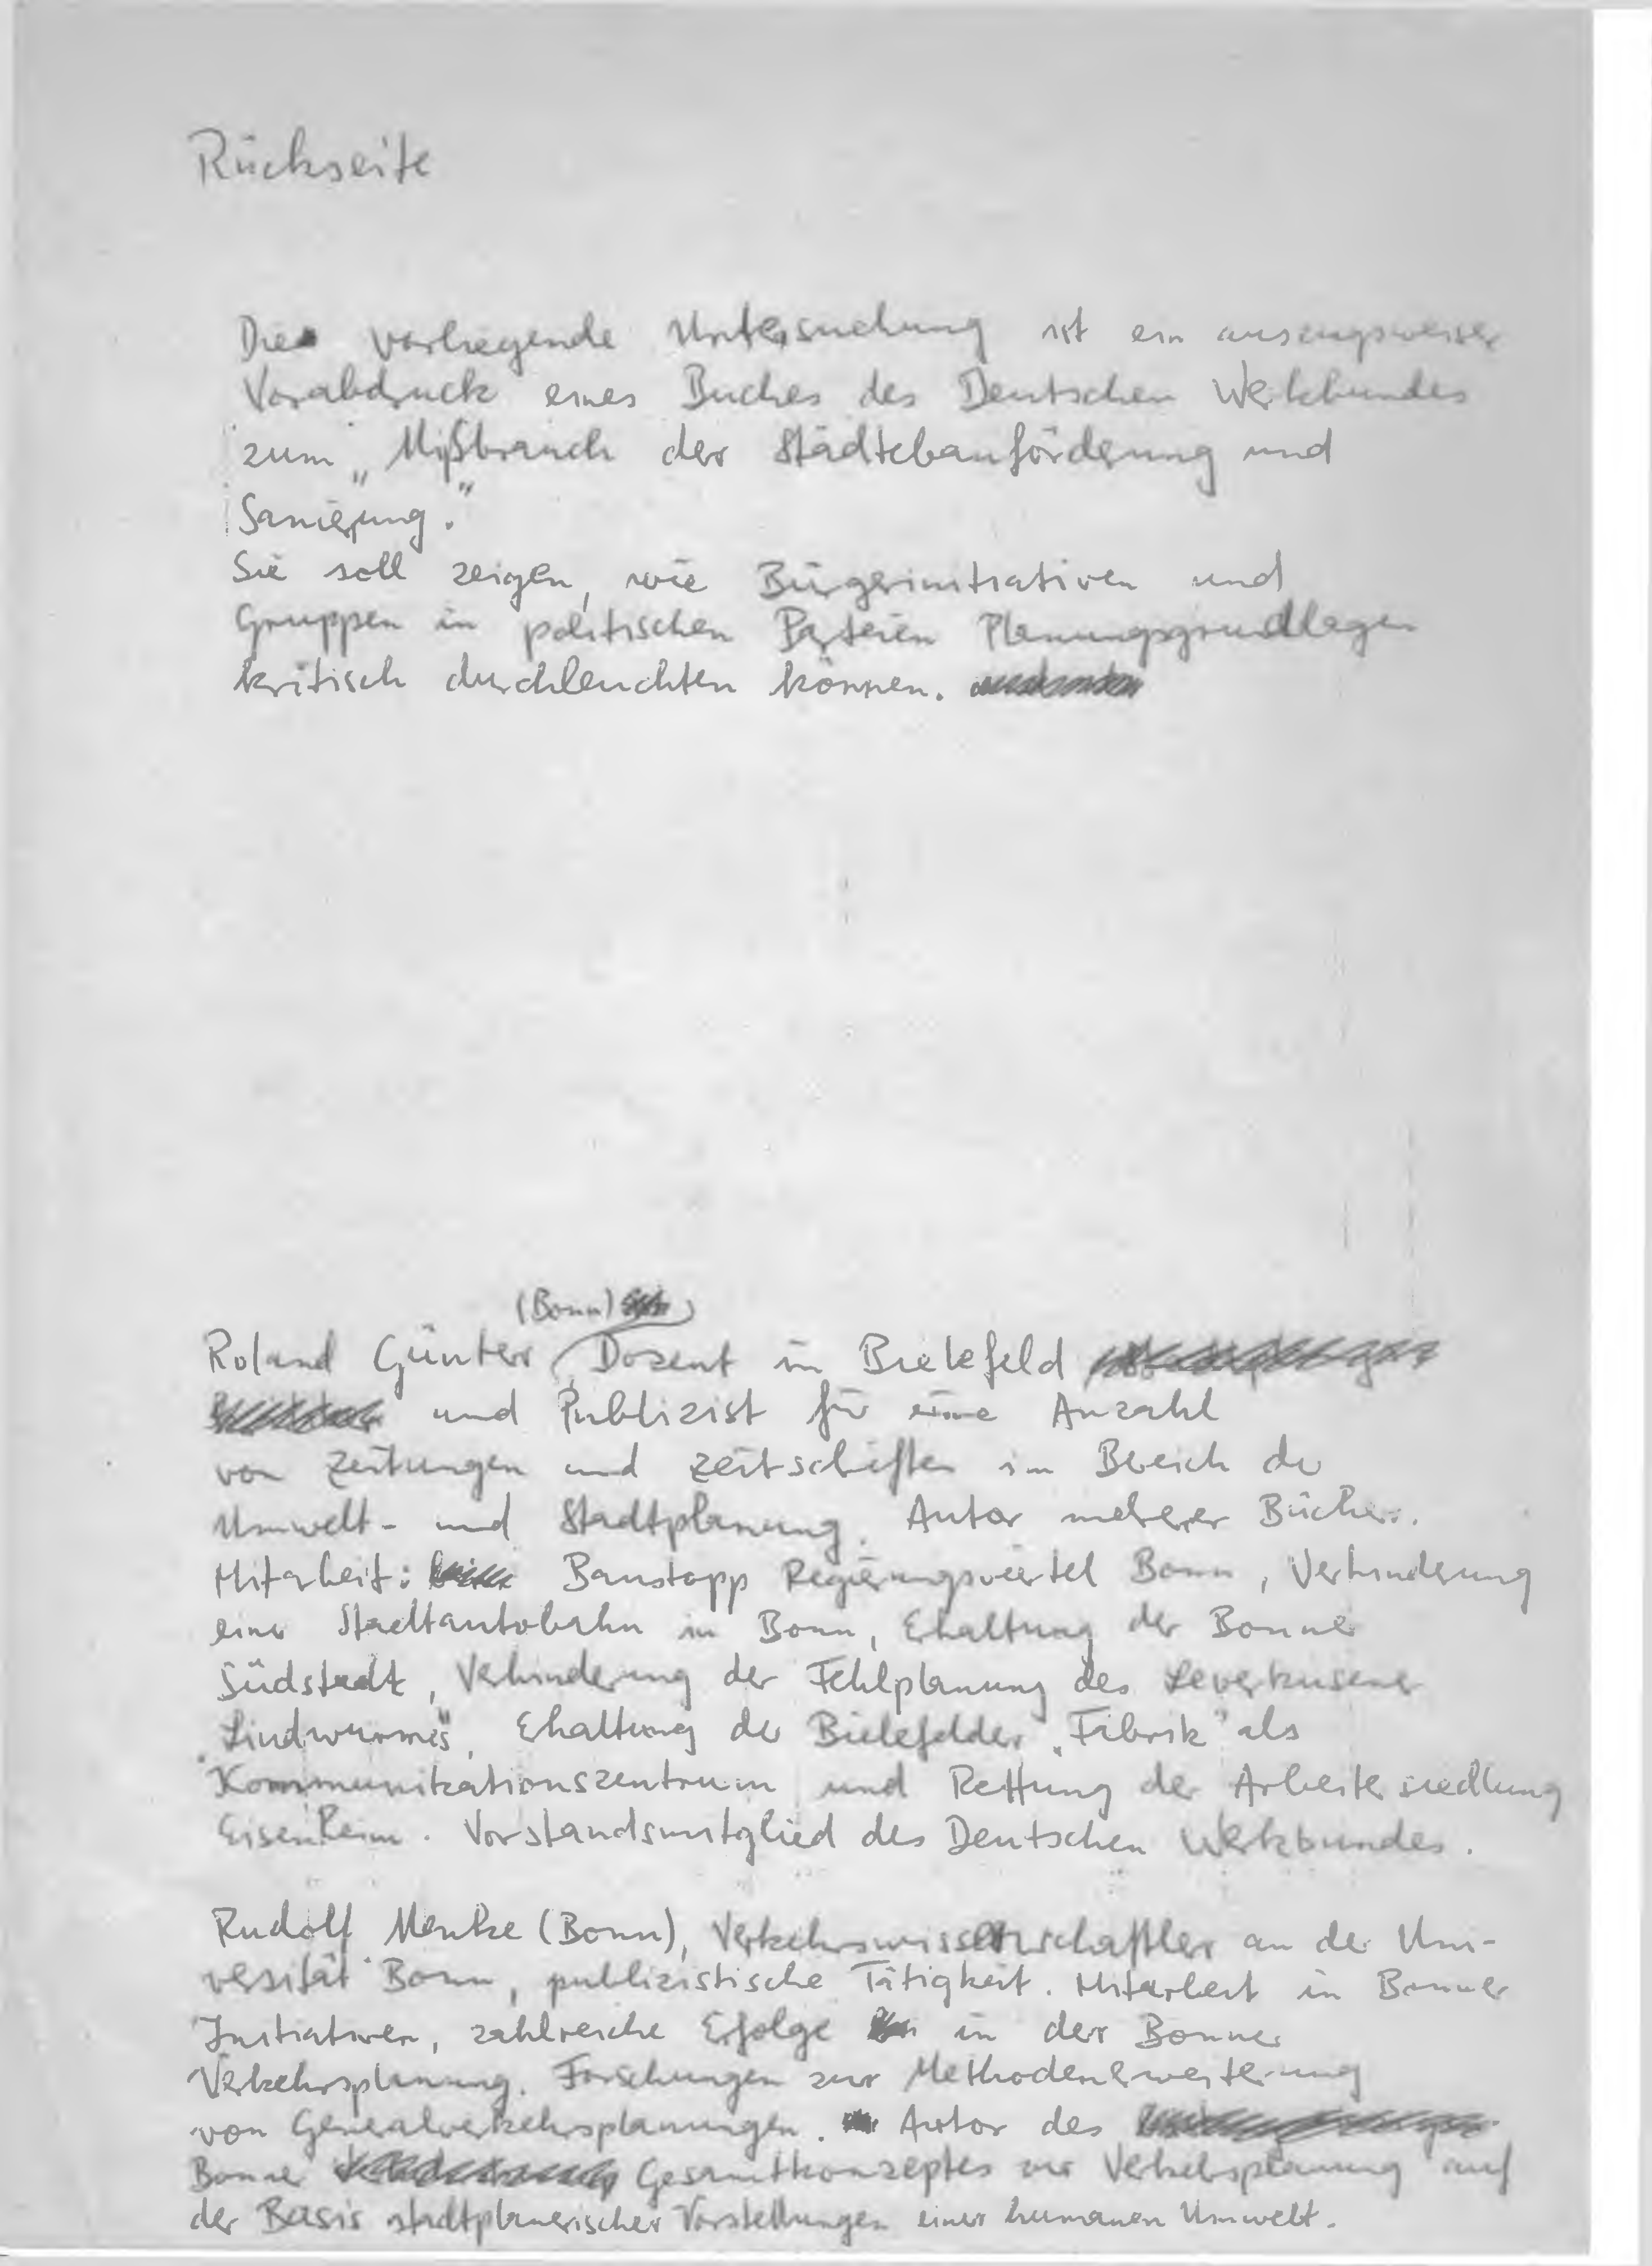 Rückseite
Die vorliegende Untersuchung ist ein auszugsweiser
Vorabdruck eines Buches des Deutschen Werkbundes
zum „Mißbrauch der Städtebauförderung und
Sanierung."
Sie soll zeigen, wie Bürgerinitiativen und
Gruppen in politischen Parteien Planungsgrundlagen
kritisch durchleuchten können.
(Bonn)
Roland Günter, Dozent in Bielefeld
und Publizist für eine Anzahl
von Zeitungen und Zeitschriften im Bereich der
Umwelt- und Stadtplanung. Autor mehrerer Bücher.
Mitarbeit: Baustopp Regierungsviertel Bonn, Verhinderung
einer Stadtautobahn in Bonn, Erhaltung der Bonner
Südstadt, Verhinderung der Fehlplanung des Leverkusener
„Lindwurms", Erhaltung der Bielefelder „Fabrik" als
Kommunikationszentrum und Rettung der Arbeitersiedlung
Eisenheim. Vorstandsmitglied des Deutschen Werkbundes.
Rudolf Menke (Bonn), Verkehrswissenschaftler an der Uni-
versität Bonn, publizistische Tätigkeit. Mitarbeit in Bonner
Initiativen, zahlreiche Erfolge in der Bonner
Verkehrsplanung. Forschungen zur Methodenerweiterung
von Generalverkehrsplanungen. Autor des
Bonner Gesamtkonzeptes zur Verkehrsplanung auf
der Basis stadtplanerischer Vorstellungen einer humanen Umwelt.